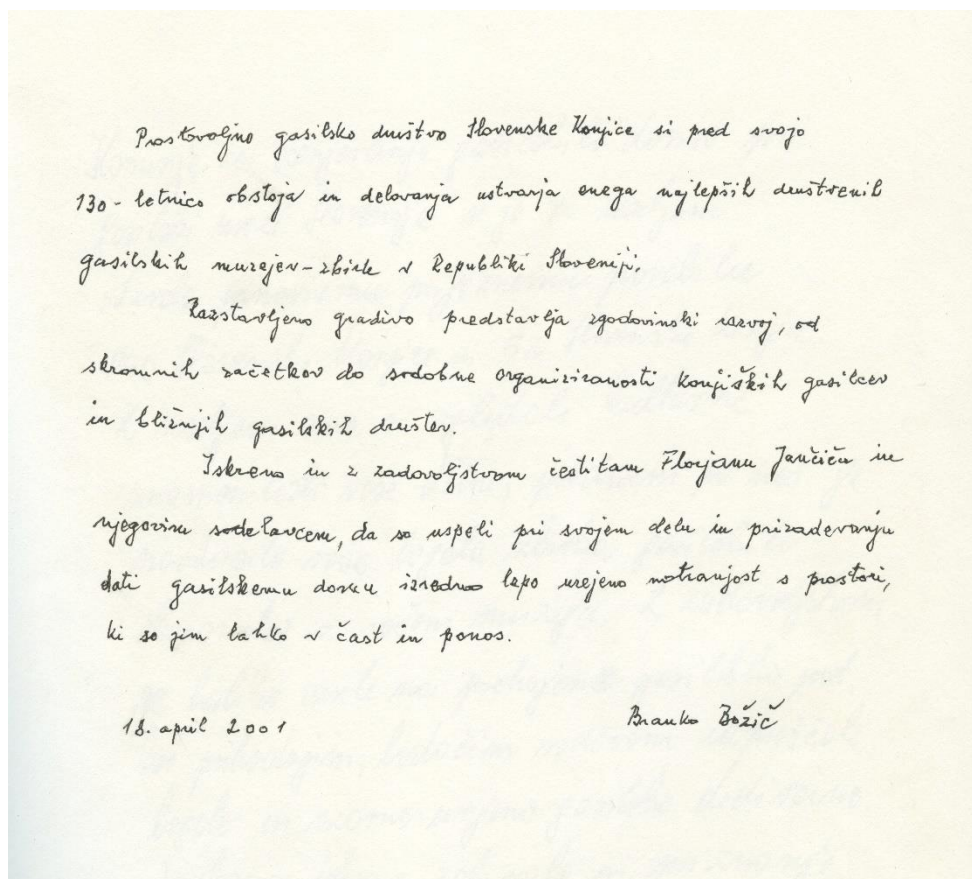 Prostovoljno gasilsko društvo Slovenske Konjice si pred svojo
130-letnico obstoja in delovanja ustvarja enega najlepših društvenih
gasilskih muzejev-zbirk v Republiki Sloveniji.
Razstavljeno gradivo predstavlja zgodovinski razvoj, od
skromnih začetkov do sodobne organiziranosti konjiških gasilcev
in bližnjih gasilskih društev.
Iskreno in z zadovoljstvom čestitam Florjanu Jančiču in
njegovim sodelavcem, da so uspeli pri svojem delu in prizadevanju
dati gasilskemu domu izredno lepo urejeno notranjost s prostori,
ki so jim lahko v čast in ponos.
18. april 2001 Branko Božič